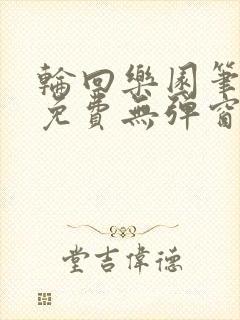 輪回樂園筆
免費無彈窗
堂吉偉德